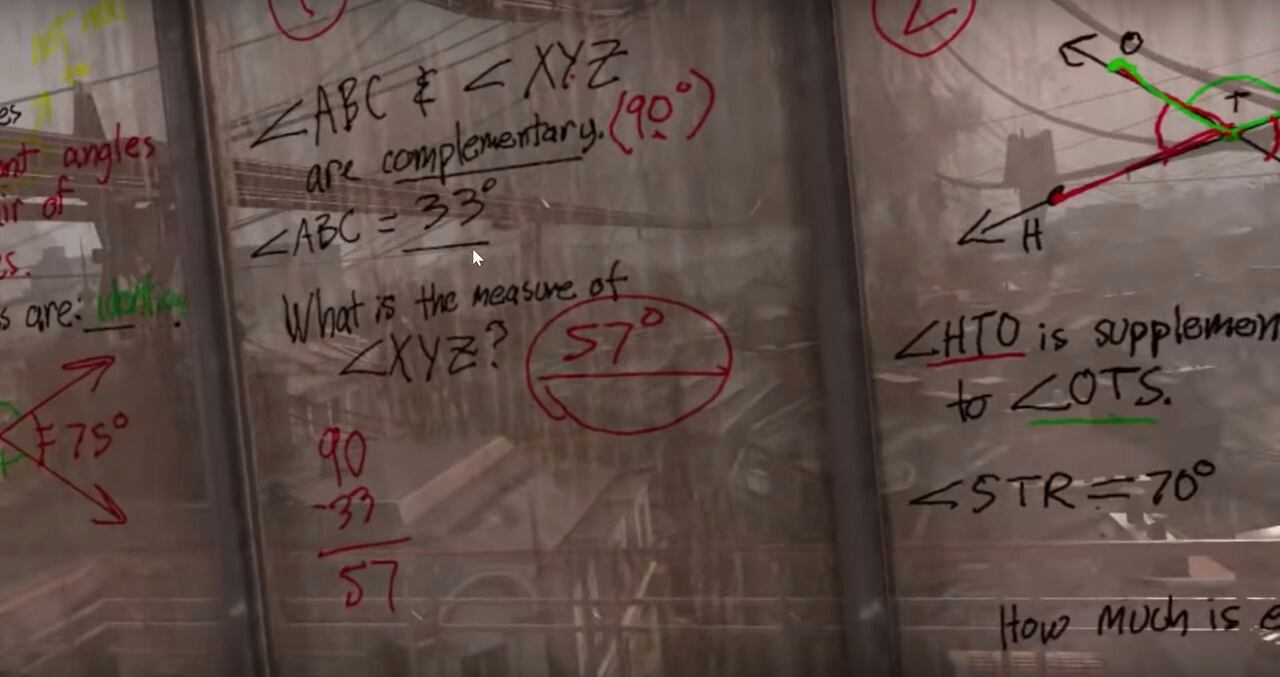 not
es
nt angles
ir of
es.
s are:
75°
1
∠ABC & ∠XYZ
are complementary. (90°)
∠ABC = 33°
What is the measure of
∠XYZ? 57°
90
-33
57
2
O
T
H
∠HTO is supplemen
to ∠OTS.
∠STR = 70°
How much is